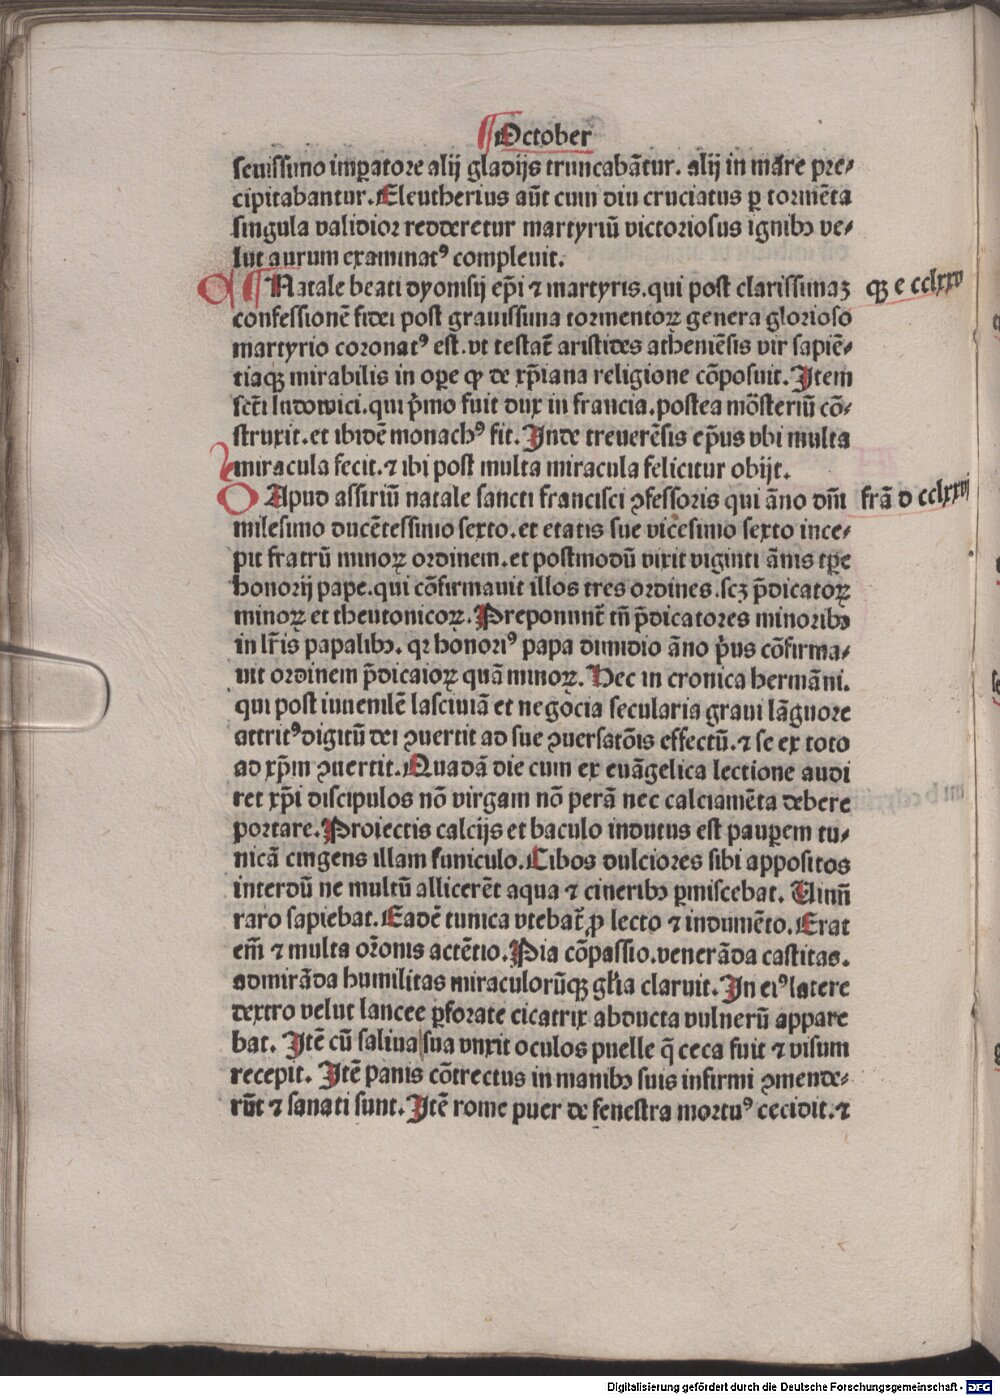 October
seuissimo imꝑatore alij gladijs truncabãtur. alij in mãre pre-
cipitabantur. Eleutherius aũt cum diu cruciatus ꝑ tormẽta
singula validior redderetur martyriũ victoriosus ignibꝫ ve-
lut aurum examinatꝰ compleuit.
Natale beati dyonisij ep̃i ⁊ martyris. qui post clarissimaꝫ qꝫ e cclxxv
confessionẽ fidei post grauissima tormentoꝝ genera glorioso
martyrio coronatꝰ est. vt testat̃ aristides atheniẽsis vir sapiẽ-
tiaqꝫ mirabilis in oꝑe qđ de xp̃iana religione cõposuit. Item
sct̃i ludowici. qui p̃mo fuit dux in francia. postea mõsteriũ cõ-
struxit. et ibidẽ monachꝰ fit. Inde treuerẽsis ep̃us vbi multa
miracula fecit. ⁊ ibi post multa miracula felicitur obijt.
Apud assiriũ natale sancti francisci ꝯfessoris qui ãno dñi frã d cclxxvj
milesimo ducẽtessimo sexto. et etatis sue vicesimo sexto ince-
pit fratrũ minoꝝ ordinem. et postmodũ vixit viginti ãnis tꝑe
honorij pape. qui cõfirmauit illos tres ordines. scꝫ p̃dicatoꝝ
minoꝝ et theutonicoꝝ. Preponunt̃ tñ p̃dicatores minoribꝫ
in lr̃is papalibꝫ. qꝛ honoriꝰ papa dimidio ãno p̃us cõfirma-
uit ordinem p̃dicaioꝝ quã minoꝝ. Hec in cronica hermãni.
qui post iuuenilẽ lasciuiã et negocia secularia graui lãguore
attritꝰ digitũ dei ꝯuertit ad sue ꝯuersatõis effectũ. ⁊ se ex toto
ad xp̃m ꝯuertit. Quadã die cum ex euãgelica lectione audi
ret xp̃i discipulos nõ virgam nõ perã nec calciamẽta debere
portare. Proiectis calcijs et baculo indutus est pauꝑem tu-
nicã cingens illam funiculo. Cibos dulciores sibi appositos
interdũ ne multũ allicerẽt aqua ⁊ cineribꝫ ꝑmiscebat. Vinũ
raro sapiebat. Eadẽ tunica vtebat̃ ꝓ lecto ⁊ indumẽto. Erat
em̃ ⁊ multa or̃onis actẽtio. Pia cõpassio. venerãda castitas.
admirãda humilitas miraculorũqꝫ gl̃ia claruit. In eiꝰ latere
dextro velut lancee ꝑforate cicatrix abducta vulnerũ appare
bat. Itẽ cũ saliua sua vnxit oculos puelle q̃ ceca fuit ⁊ visum
recepit. Itẽ panis cõtrectus in manibꝫ suis infirmi ꝯmende-
rũt ⁊ sanati sunt. Itẽ rome puer de fenestra mortuꝰ cecidit. ⁊
Digitalisierung gefördert durch die Deutsche Forschungsgemeinschaft - DFG